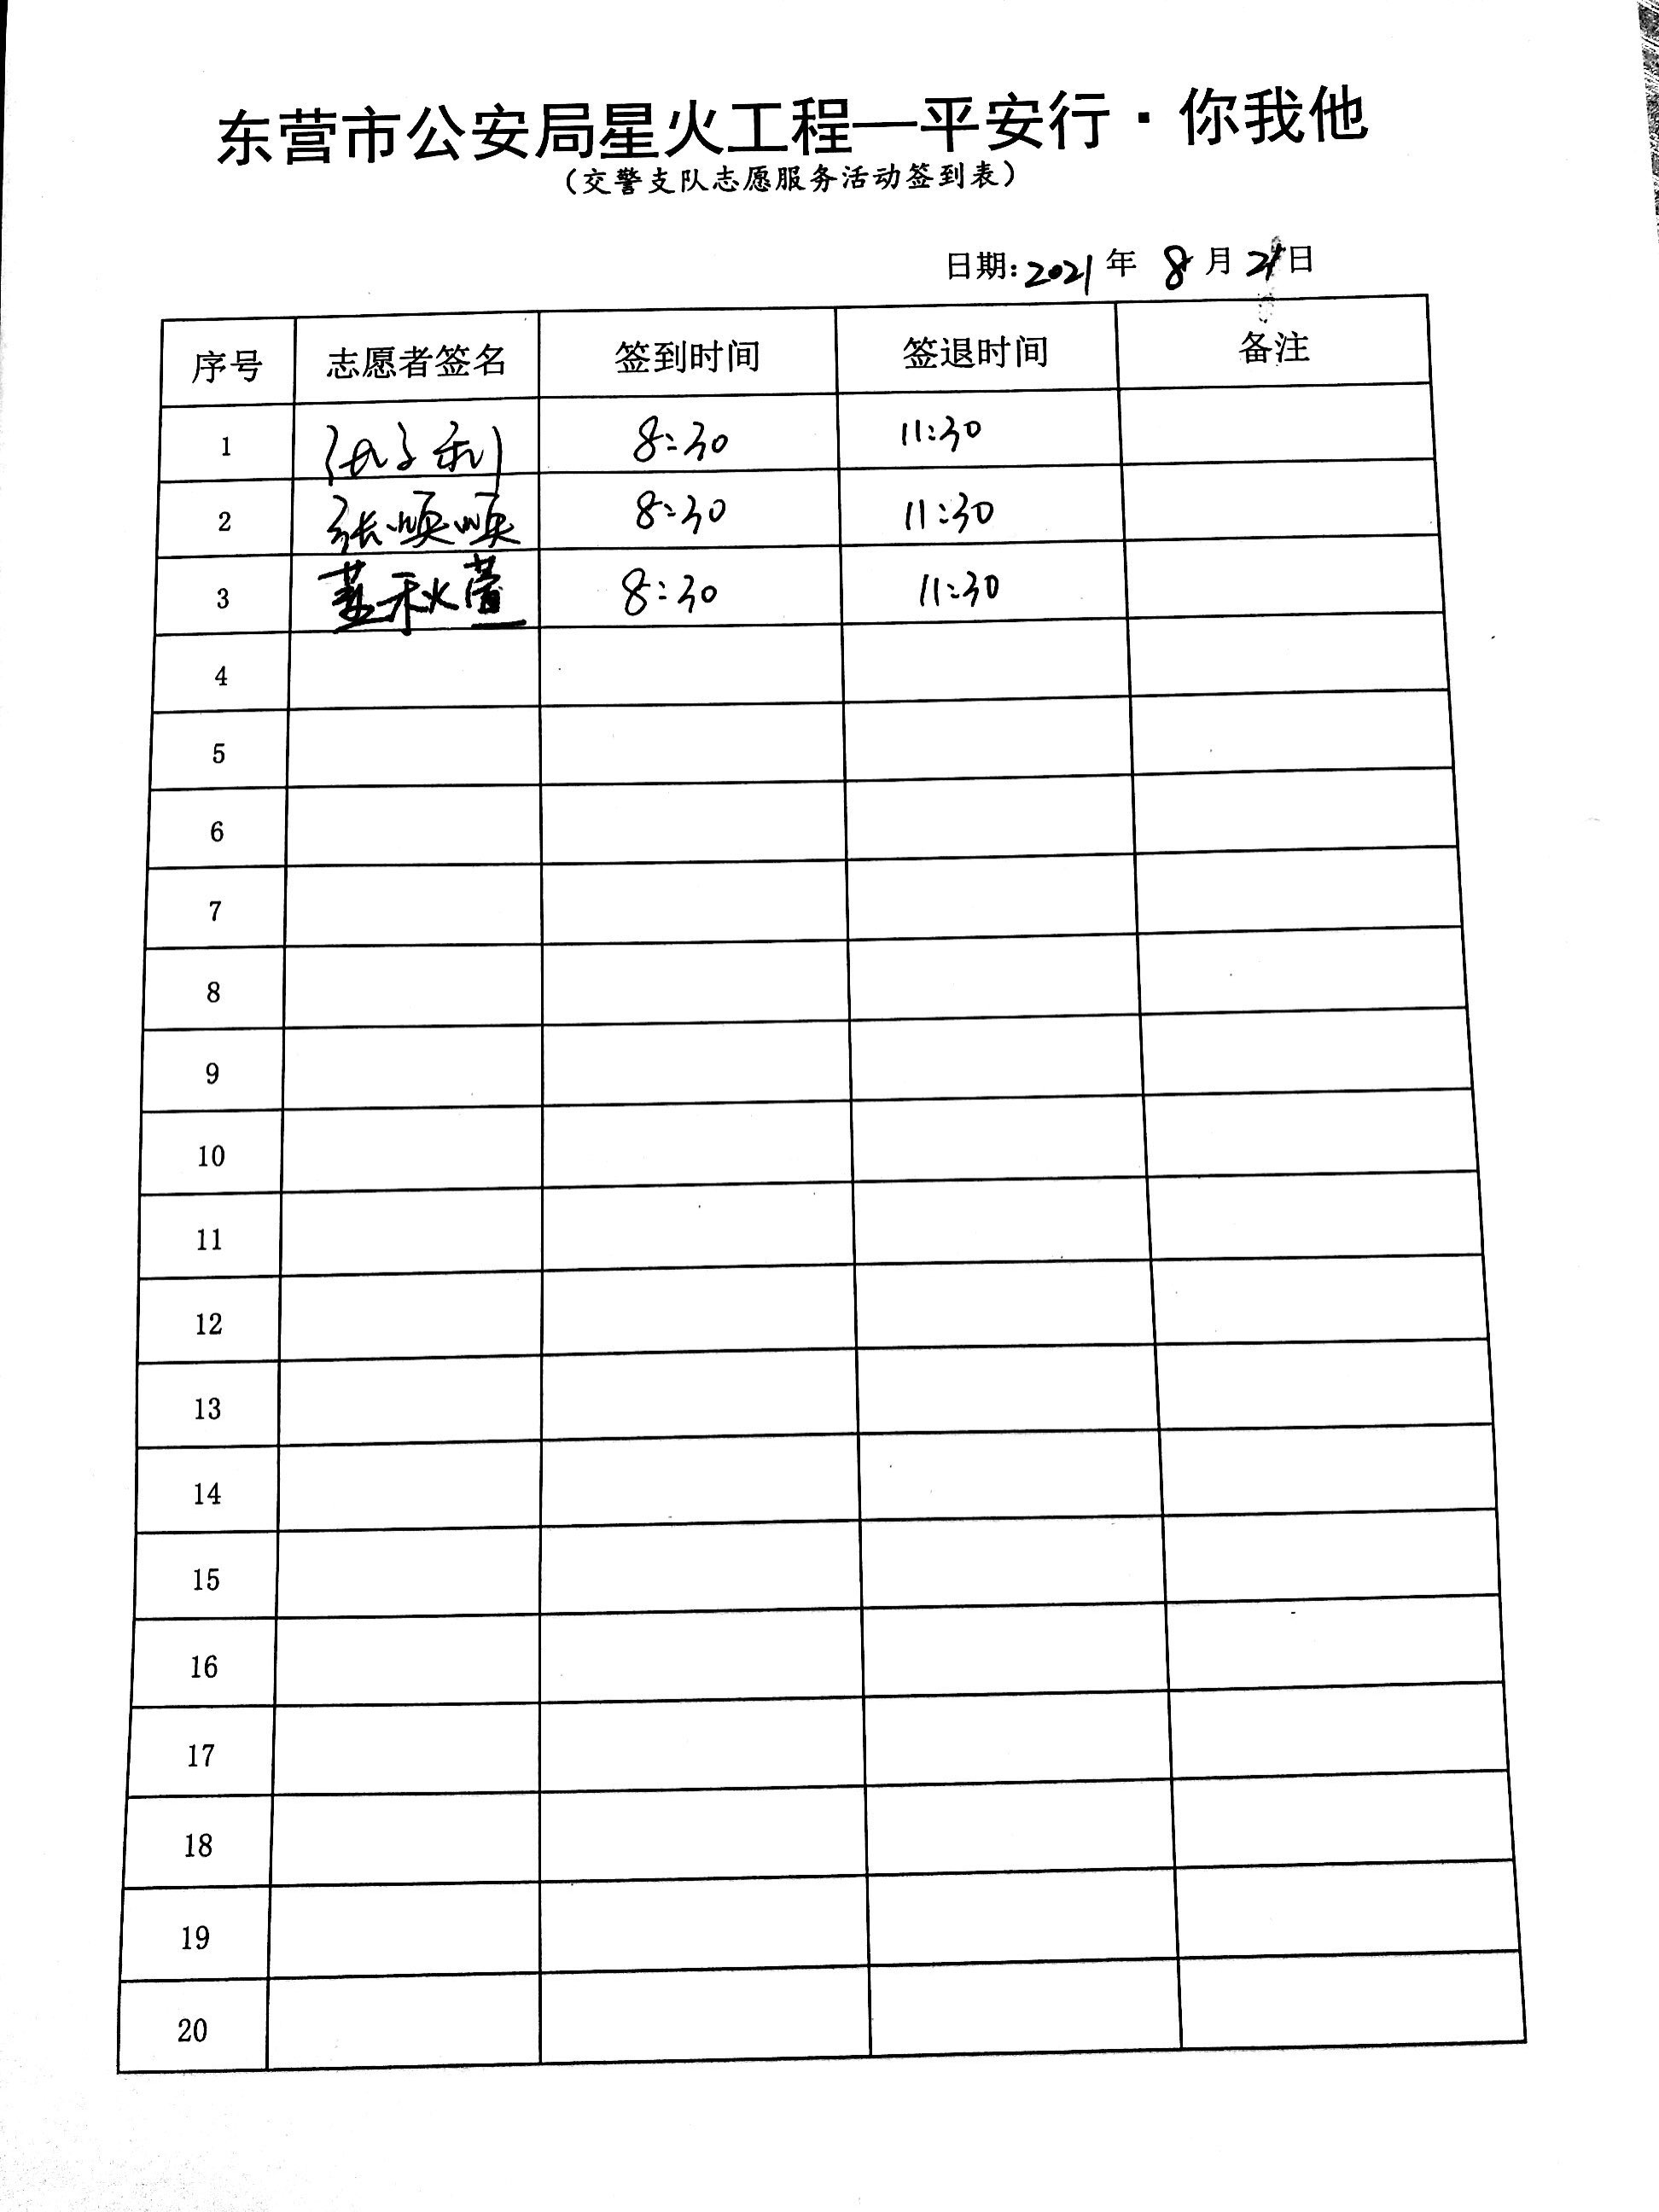 东营市公安局星火工程—平安行·你我他
（交警支队志愿服务活动签到表）
日期:2021年 8月21日
序号 志愿者签名 签到时间 签退时间 备注
1 8:30 11:30
2 张顺顺 8:30 11:30
3 秋萱 8:30 11:30
4
5
6
7
8
9
10
11
12
13
14
15
16
17
18
19
20